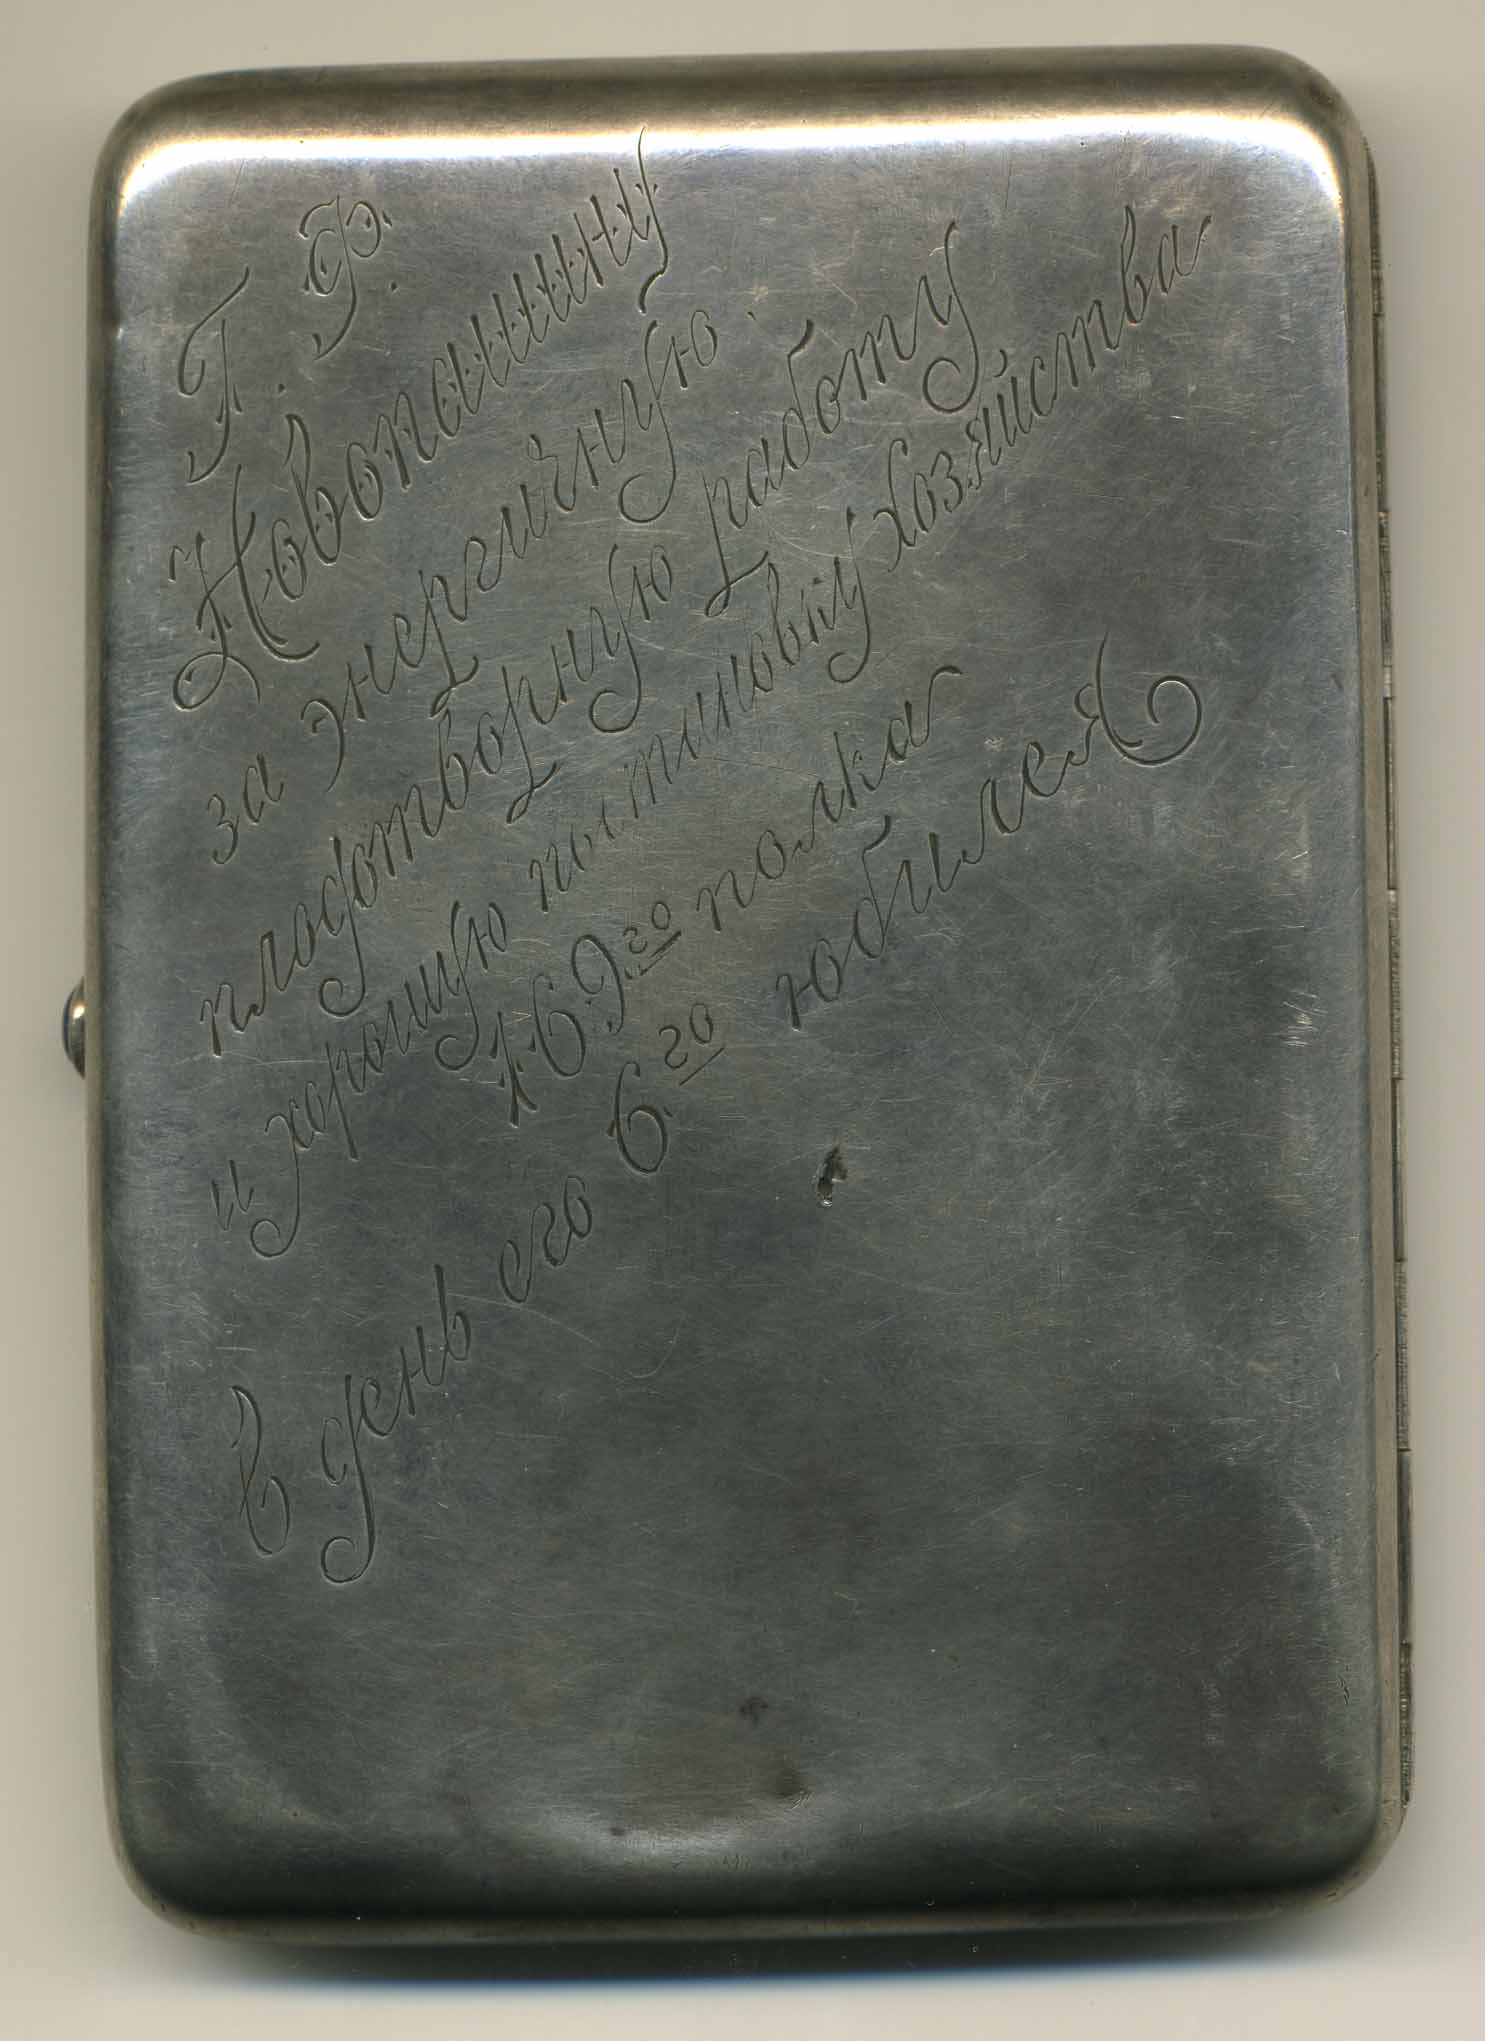 Г. Ф.
Новопашину
за энергичную
плодотворную работу
и хорошую постановку хозяйства
169го полка
в день его 6го юбилея